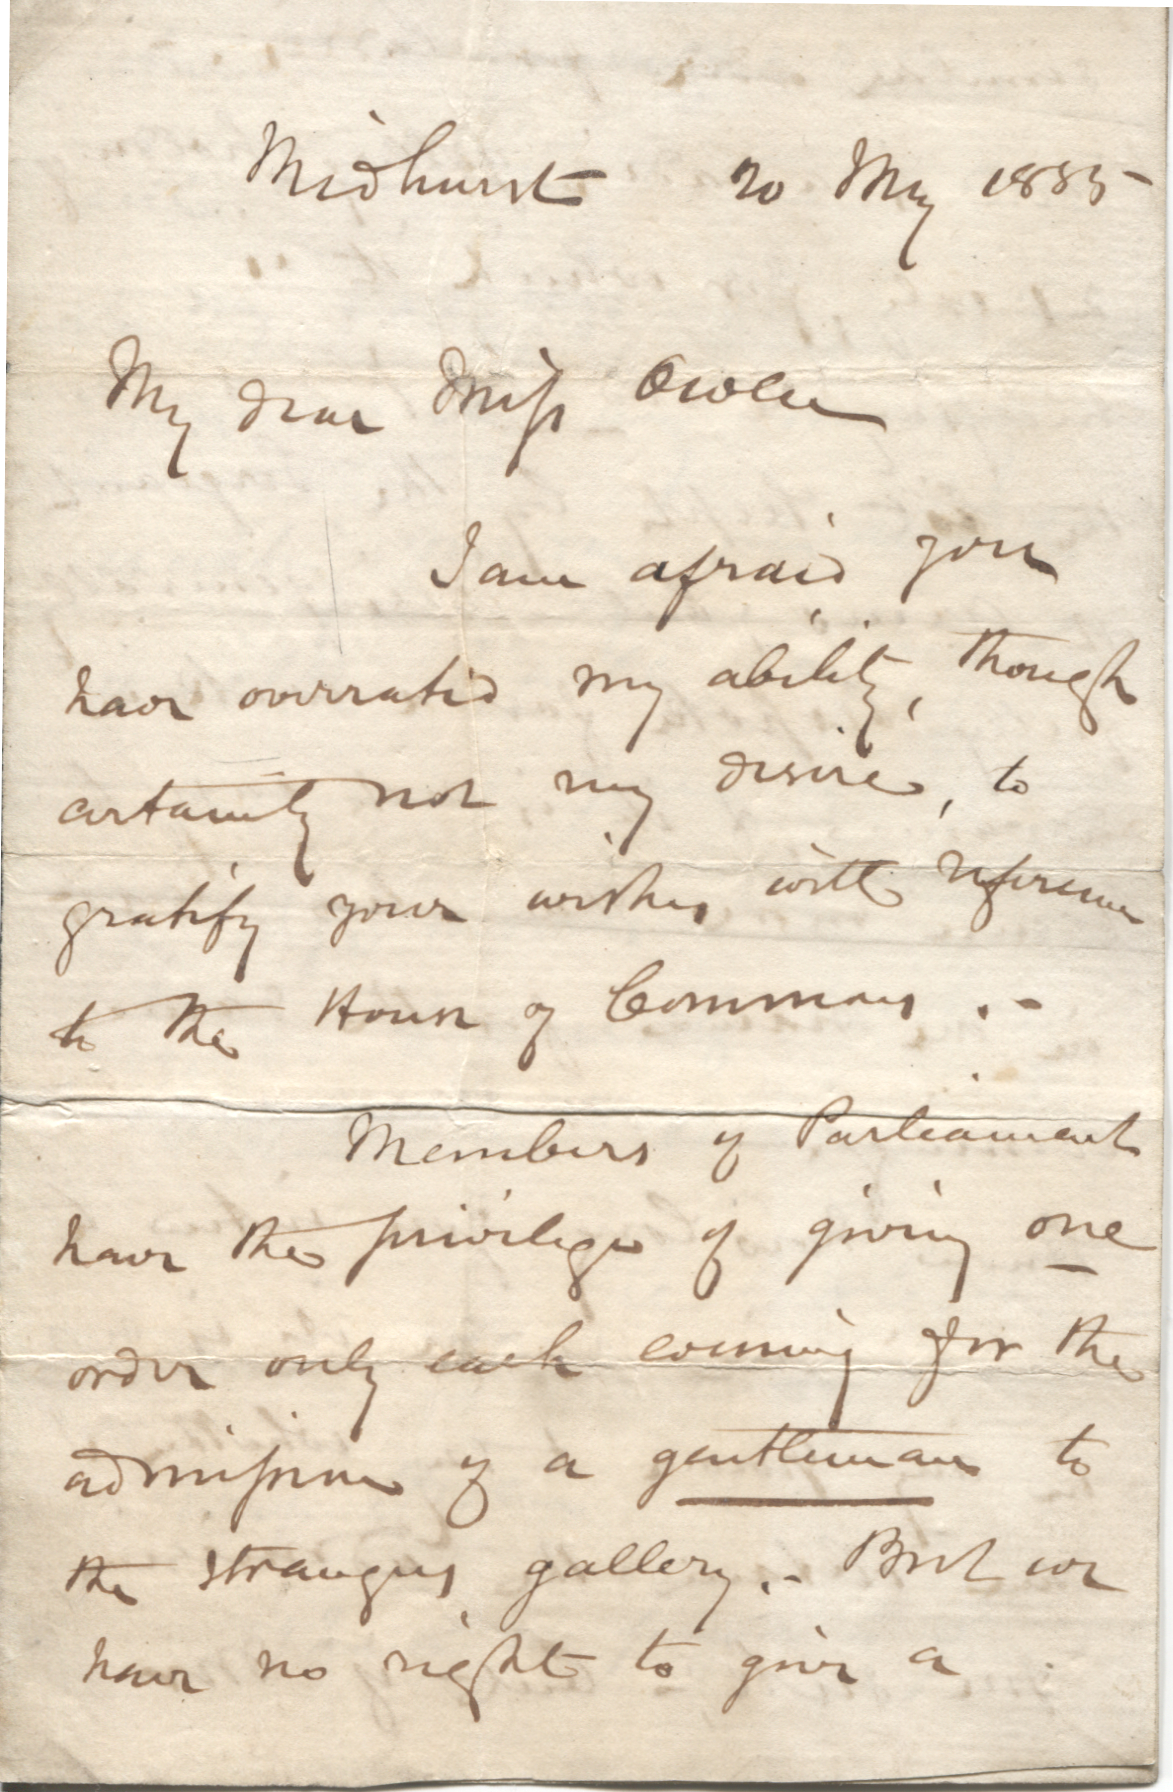 Midhurst 20 May 1885
My dear Miss Owlee
I am afraid you
have overrated my ability, though
certainly not my desire, to
gratify your wishes with reference
to the House of Commons . -
Members of Parliament
have the privilege of giving one
order only each evening for the
admission of a gentleman to
the strangers gallery. - But we
have no right to give a